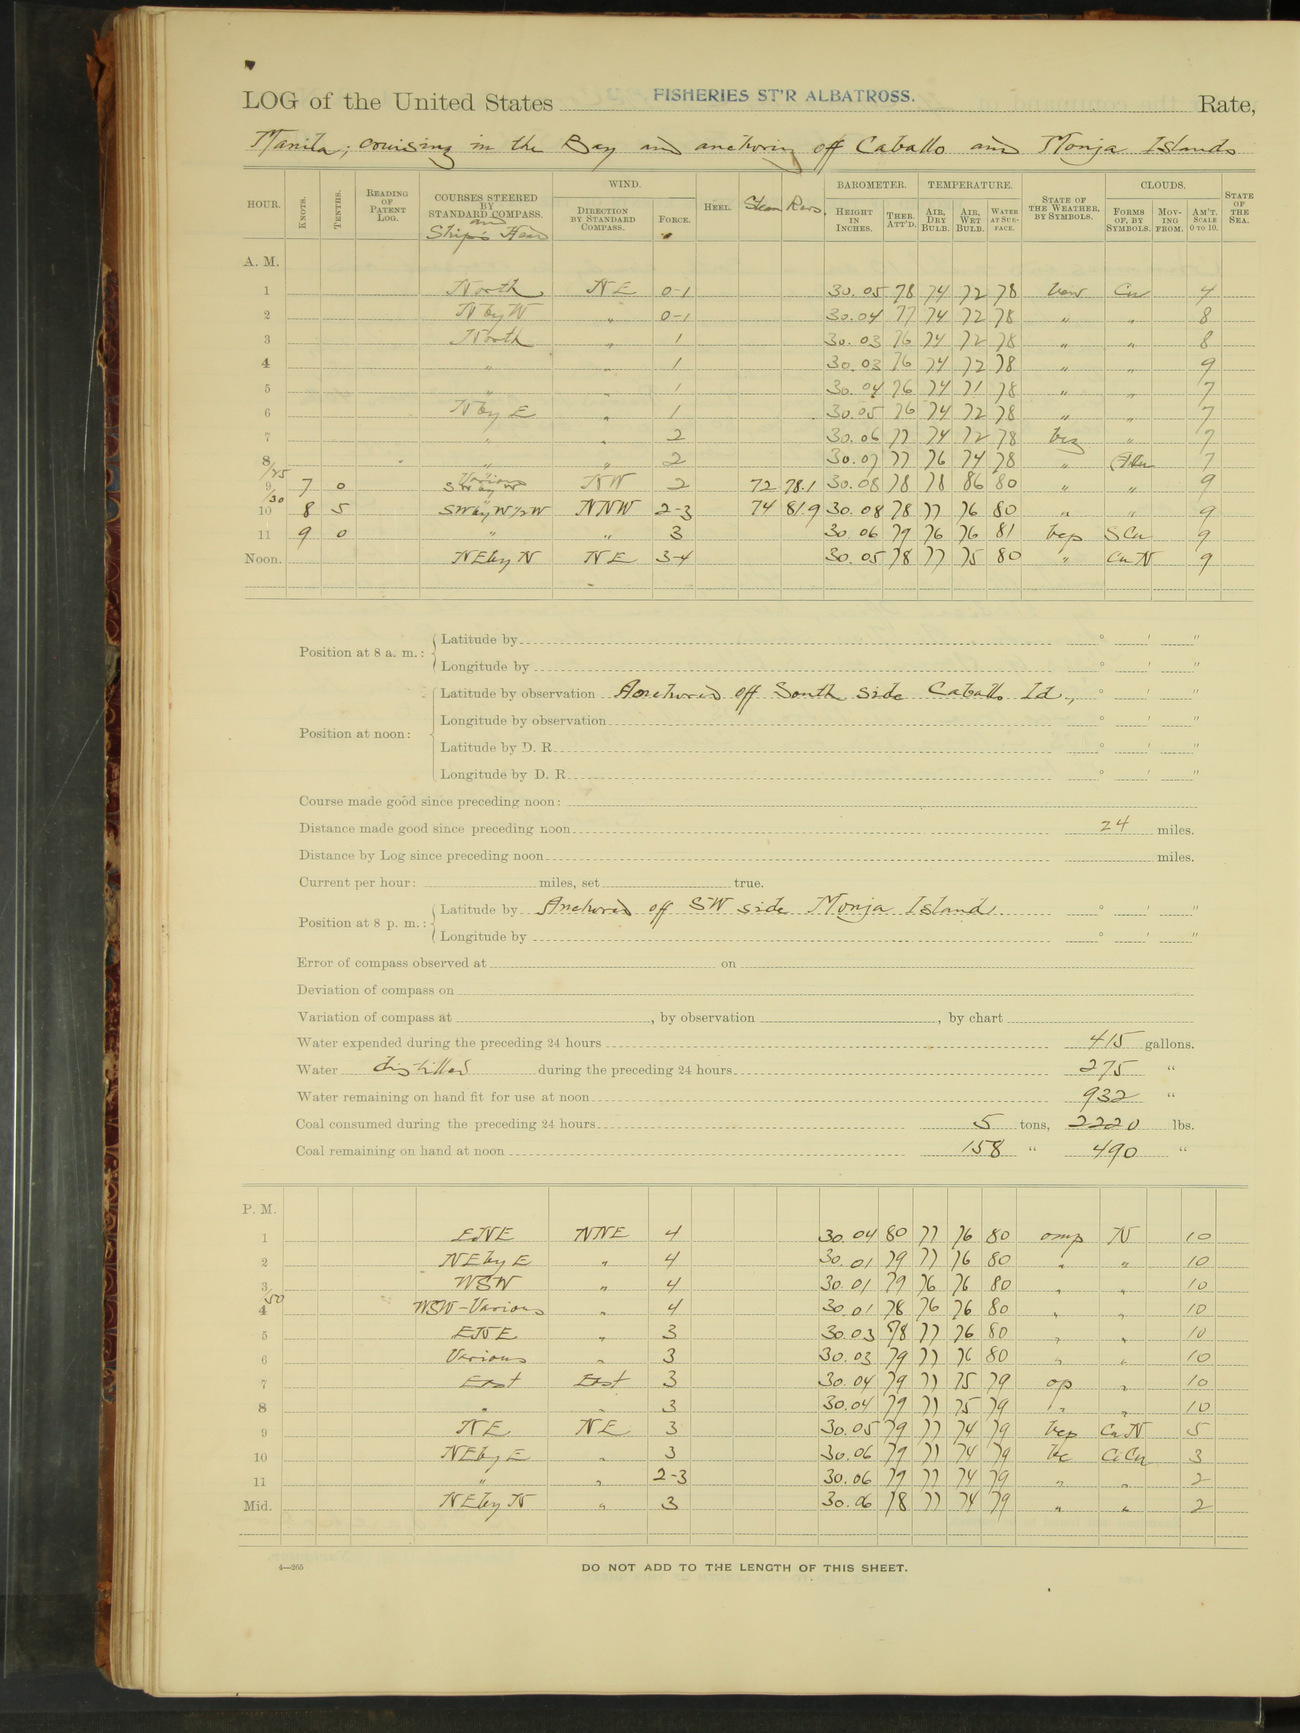 LOG of the United States FISHERIES ST'R ALBATROSS. Rate,
Manila; cruising in the Bay and anchoring off Caballo and Monja Islands
HOUR. KNOTS. TENTHS. READING OF PATENT LOG. COURSES STEERED BY STANDARD COMPASS. and Ship's Head WIND. DIRECTION BY STANDARD COMPASS. FORCE. HEEL. Steam Revs. BAROMETER. HEIGHT IN INCHES. THER. ATT'D. TEMPERATURE. AIR, DRY BULB. AIR, WET BULB. WATER AT SURFACE. STATE OF THE WEATHER, BY SYMBOLS. CLOUDS. FORMS OF, BY SYMBOLS. MOVING FROM. AM'T. SCALE 0 TO 10. STATE OF THE SEA.
A. M.
1 North NE 0-1 30.05 78 74 72 78 Cu 4
2 N by W " 0-1 30.04 77 74 72 78 " " 8
3 North " 1 30.03 76 74 72 78 " " 8
4 " " 1 30.03 76 74 72 78 " " 9
5 " " 1 30.04 76 74 71 78 " " 7
6 N by E " 1 30.05 76 74 72 78 " " 7
7 " " 2 30.06 77 74 72 78 bcz " 7
8 " " 2 30.07 77 76 74 78 " 7
8/25
9 7 0 Various SW by W NW 2 72 78.1 30.08 78 78 86 80 " " 9
9/30
10 8 5 SW by W 1/2 W NNW 2-3 74 81.9 30.08 78 77 76 80 " " 9
11 9 0 " " 3 30.06 79 76 76 81 bcp S Cu 9
Noon. NE by N NE 3-4 30.05 78 77 75 80 " Cu N 9
Position at 8 a. m.: Latitude by ° ' "
Longitude by ° ' "
Position at noon: Latitude by observation Anchored off South side Caballo Id., ° ' "
Longitude by observation ° ' "
Latitude by D. R. ° ' "
Longitude by D. R. ° ' "
Course made good since preceding noon:
Distance made good since preceding noon 24 miles.
Distance by Log since preceding noon miles.
Current per hour: miles, set true.
Position at 8 p. m.: Latitude by Anchored off SW side Monja Island. ° ' "
Longitude by ° ' "
Error of compass observed at on
Deviation of compass on
Variation of compass at , by observation , by chart
Water expended during the preceding 24 hours 415 gallons.
Water distilled during the preceding 24 hours 275 "
Water remaining on hand fit for use at noon 932 "
Coal consumed during the preceding 24 hours 5 tons, 2220 lbs.
Coal remaining on hand at noon 158 " 490 "
P. M.
1 ENE NNE 4 30.04 80 77 76 80 omp N 10
2 NE by E " 4 30.01 79 77 76 80 " " 10
3 WSW " 4 30.01 79 76 76 80 " " 10
3/50
4 WSW-Various " 4 30.01 78 76 76 80 " " 10
5 ENE " 3 30.03 78 77 76 80 " " 10
6 Various " 3 30.03 79 77 76 80 " " 10
7 East East 3 30.04 79 77 75 79 op " 10
8 " 3 30.04 79 77 75 79 " " 10
9 NE NE 3 30.05 79 77 74 79 bcp Cu N 5
10 NE by E " 3 30.06 79 77 74 79 bc Ci Cu 3
11 " " 2-3 30.06 79 77 74 79 " " 2
Mid. NE by N " 3 30.06 78 77 74 79 " " 2
4—265 DO NOT ADD TO THE LENGTH OF THIS SHEET.